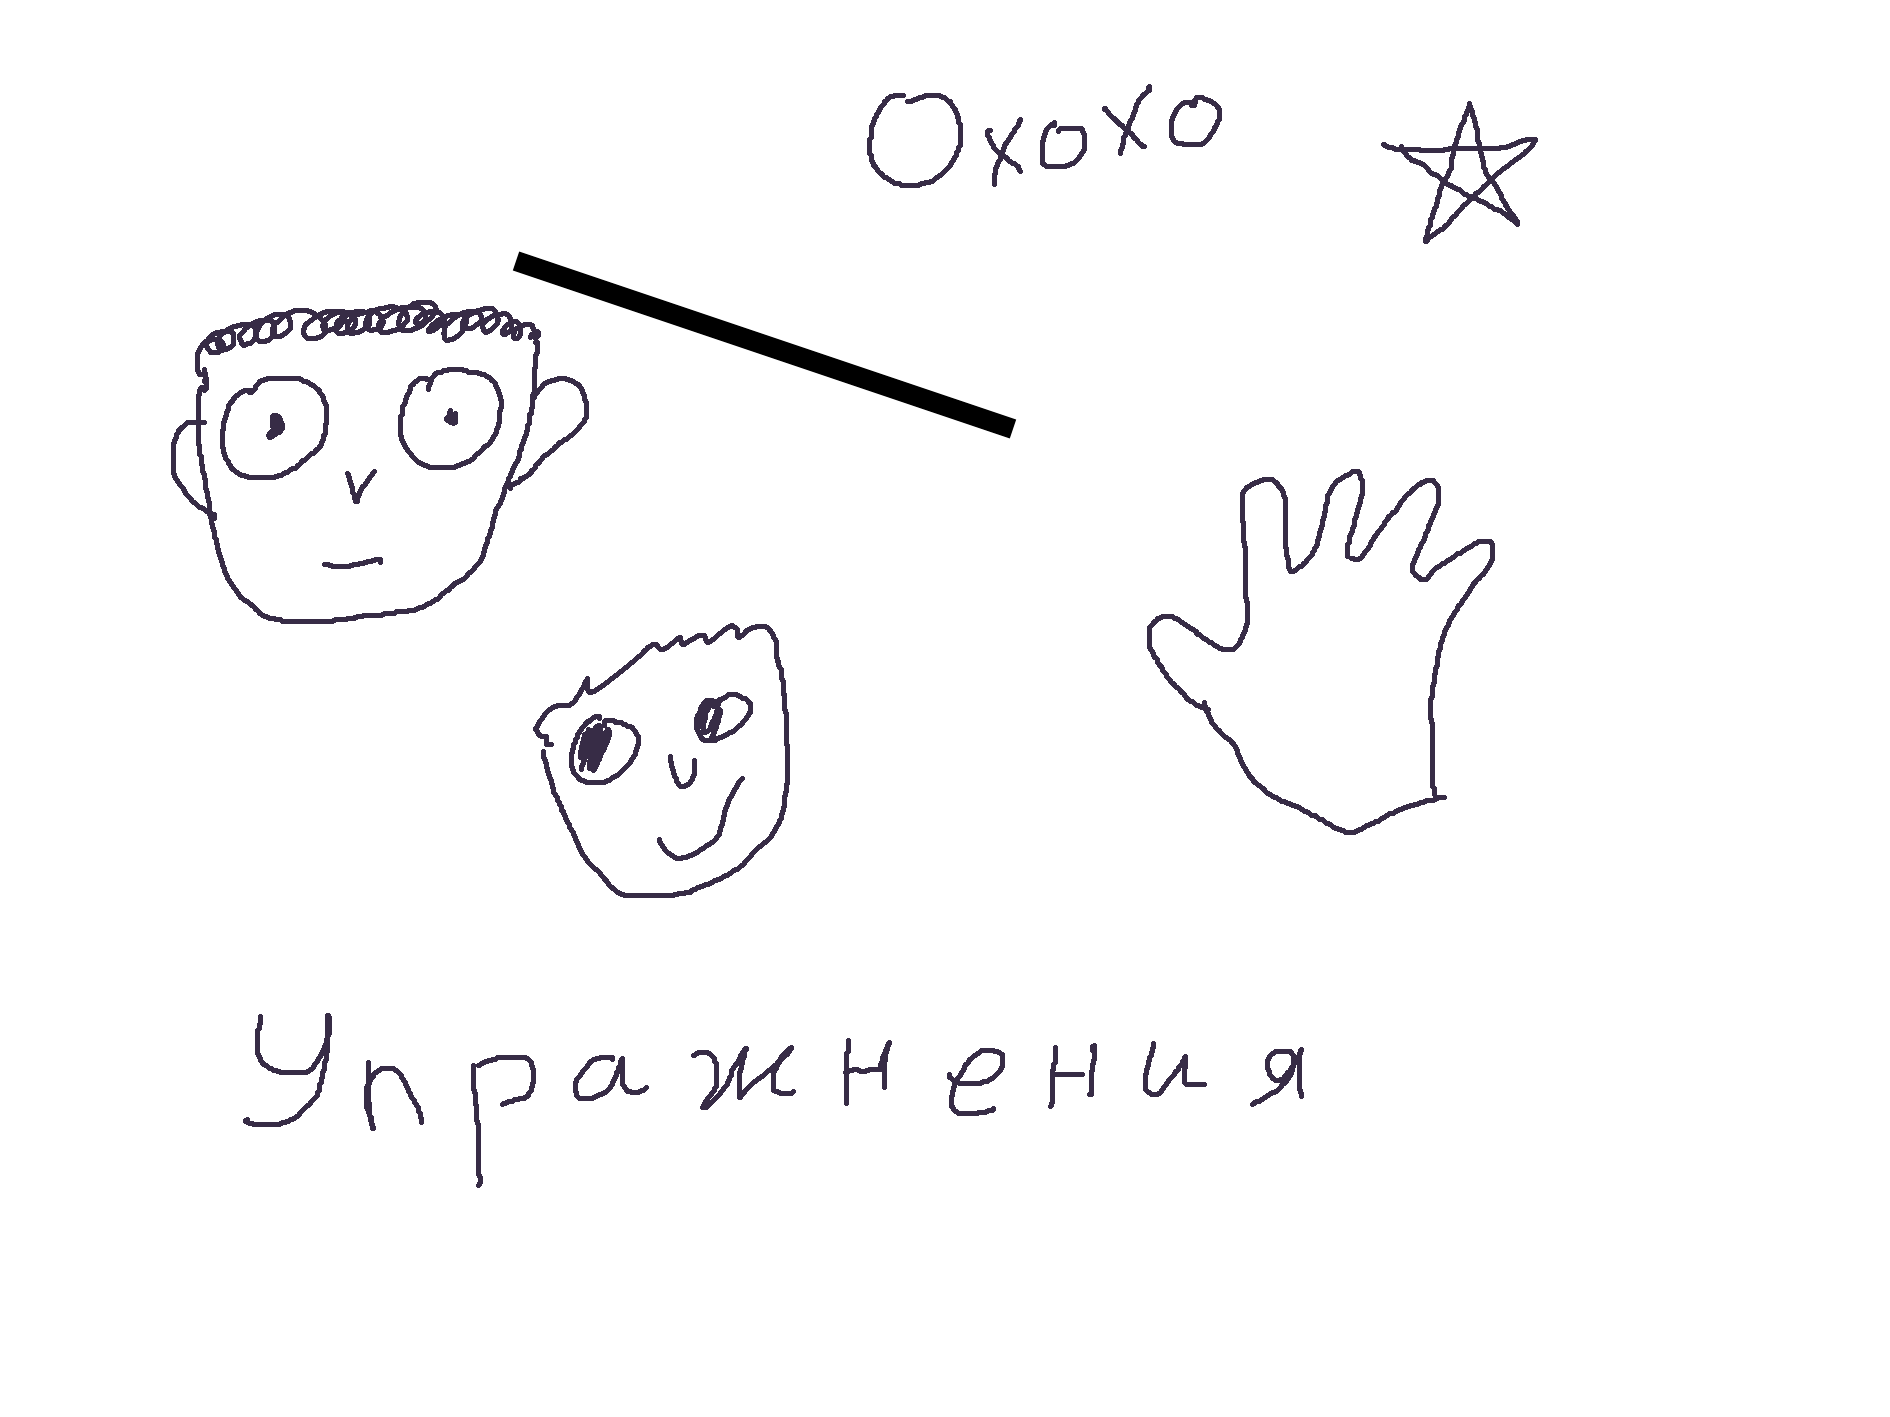 Охохо
Упражнения